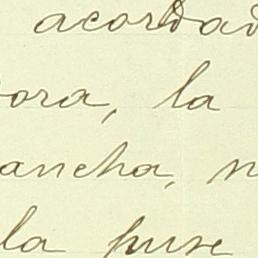 acordad
ora, la
ancha, n
la puse